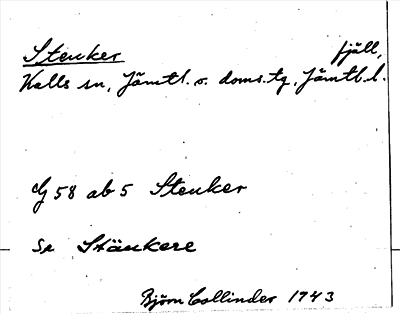 Stenker fjäll,
Kalls sn, Jämtl. o. doms.tg, Jämtl. l.
G 58 ab 5 Stenker
Se Stänkere
Björn Collinder 1943